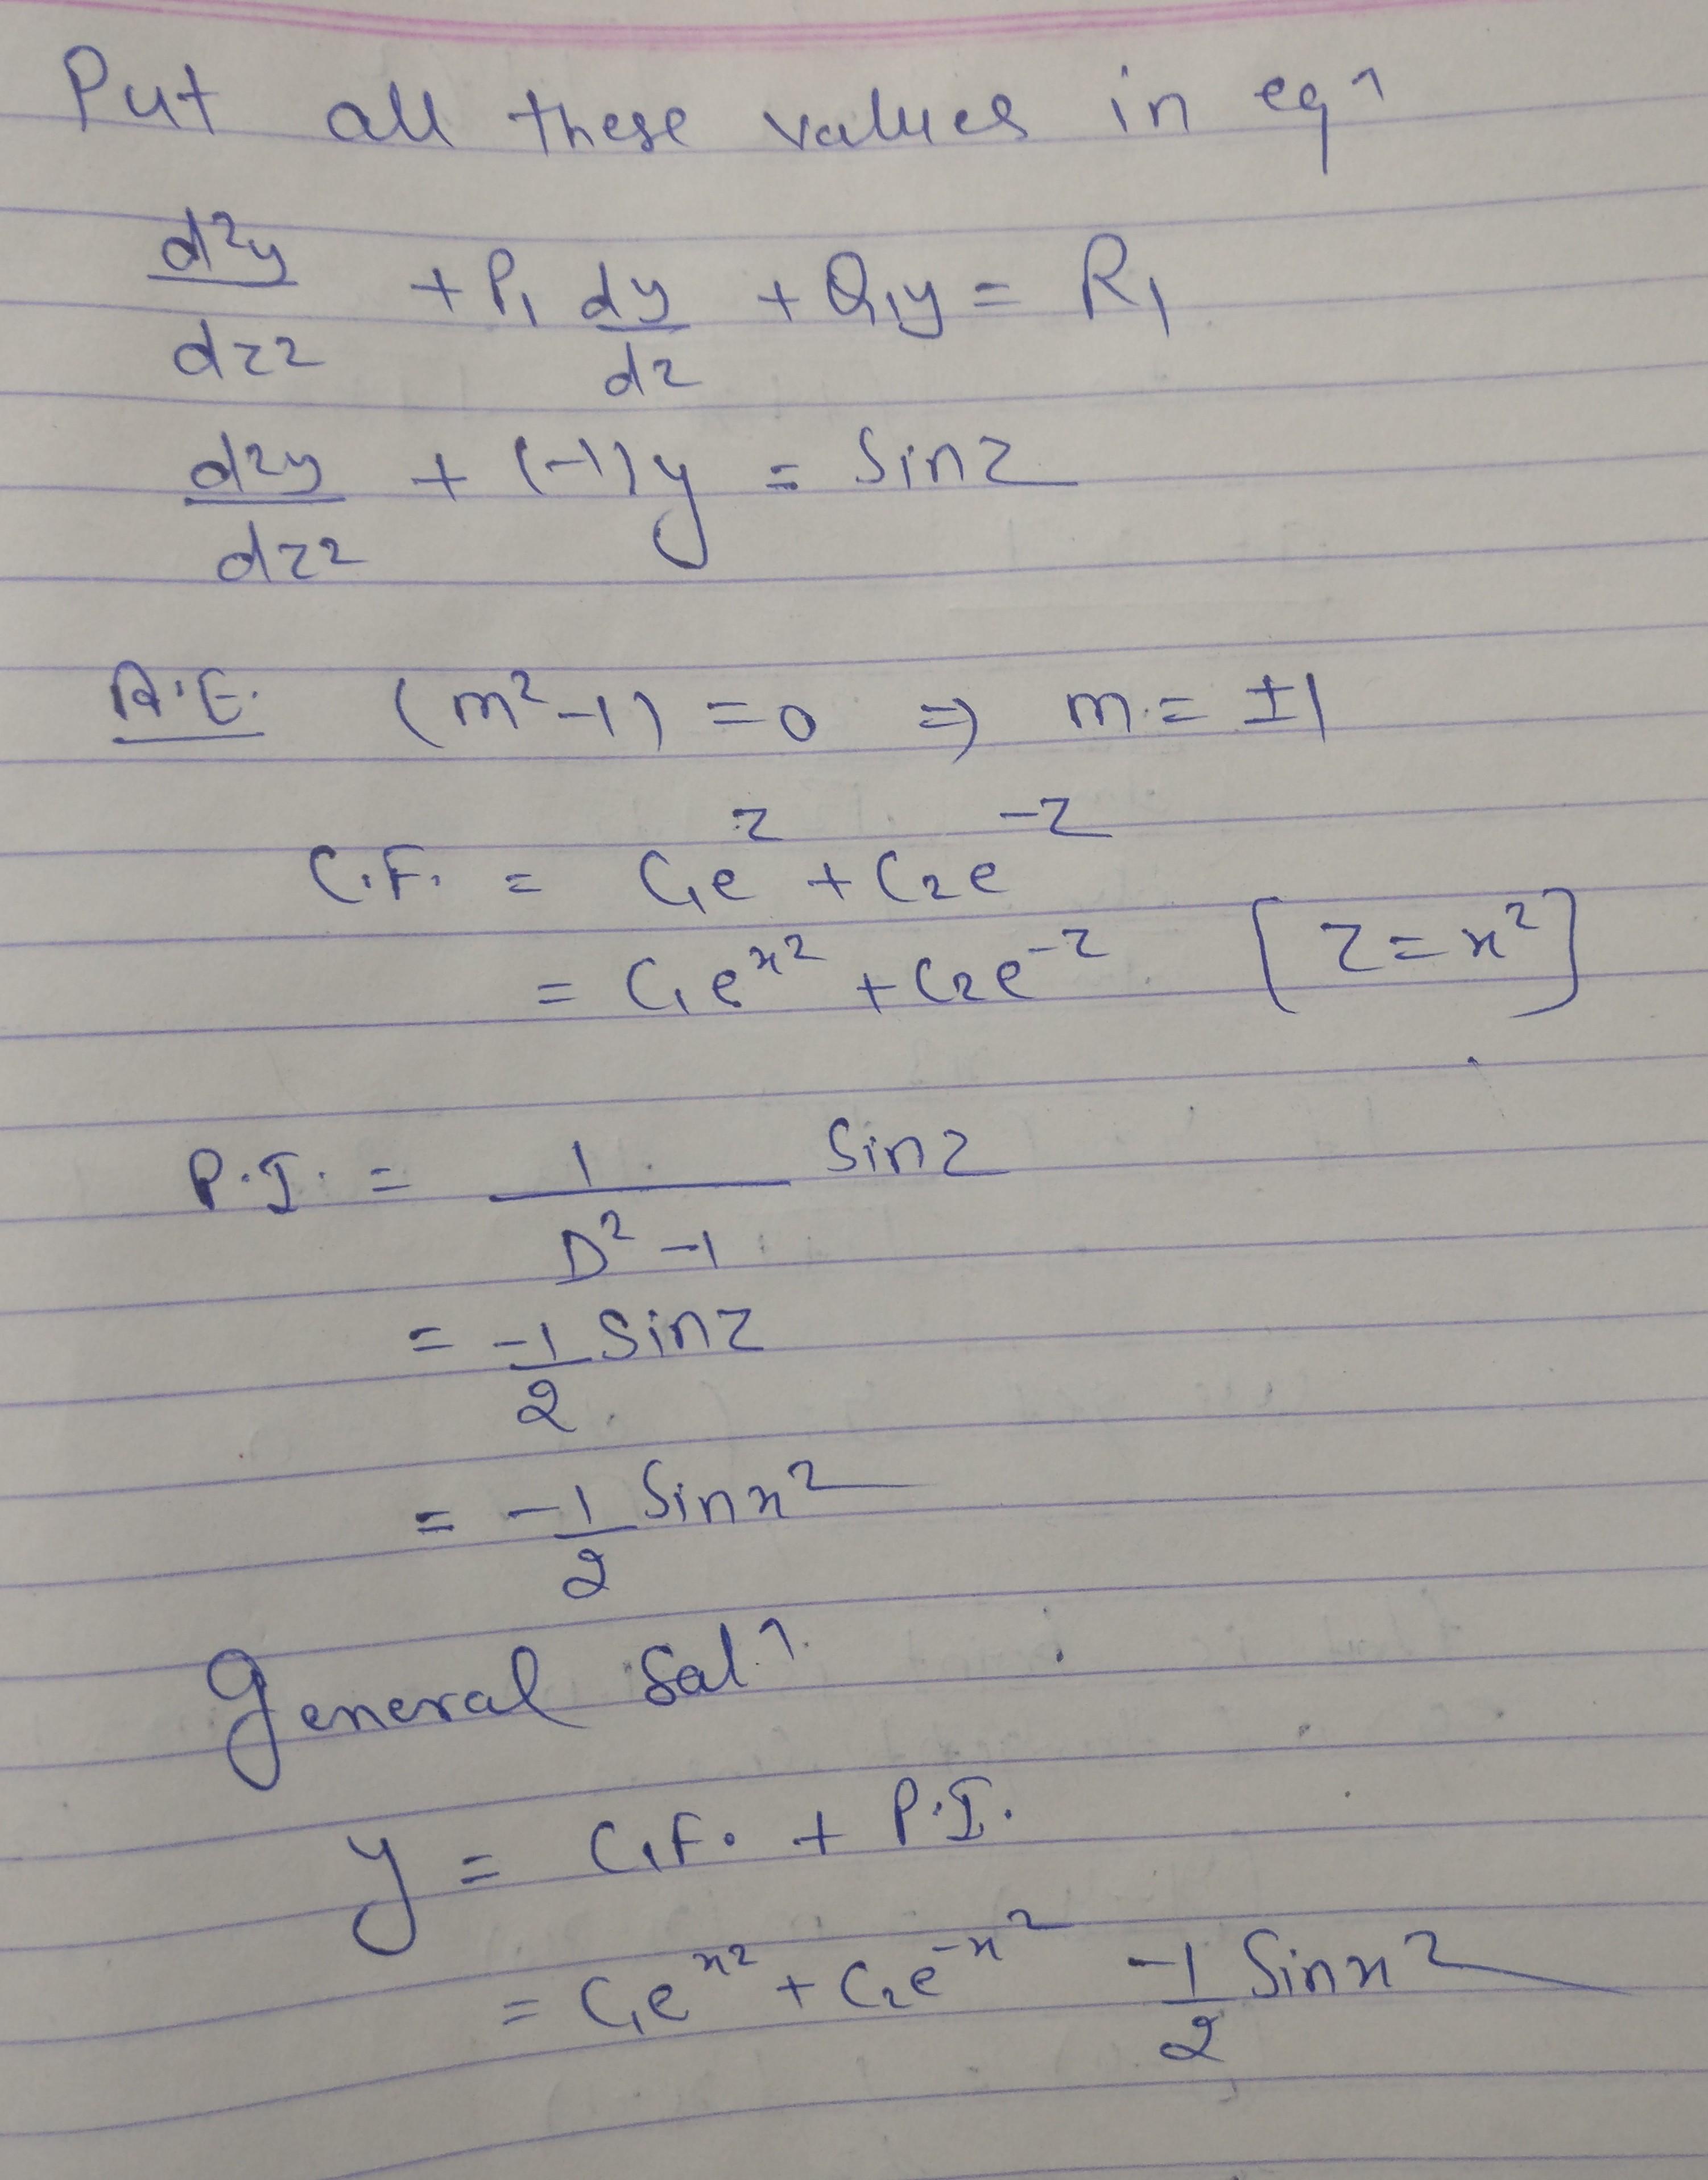 Put all these values in eqn
d²y/dz² + P₁ dy/dz + Q₁y = R₁
d²y/dz² + (-1)y = Sinz
A.E. (m²-1) = 0 ⇒ m = ±1
C.F. = C₁e^z + C₂e^-z
= C₁e^x² + C₂e^-z [z = x²]
P.I. = 1/(D²-1) Sinz
= -1/2 Sinz
= -1/2 Sinx²
General Solⁿ
y = C.F. + P.I.
= C₁e^x² + C₂e^-x² -1/2 Sinx²